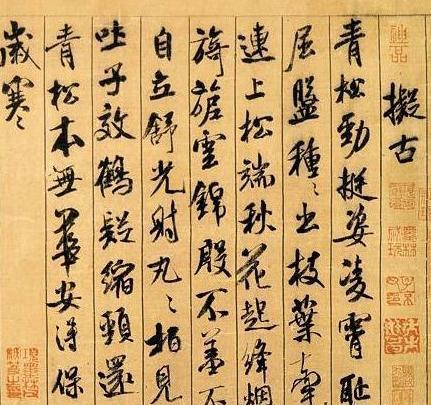 擬古
青松勁挺姿凌霄恥
屈盤種〻出枝葉牽
連上松端秋花起絳煙
旖旎雲錦殷不羞不
自立舒光射丸〻柏見
吐子效鶴疑縮頸還
青松本無華安得保
歲寒